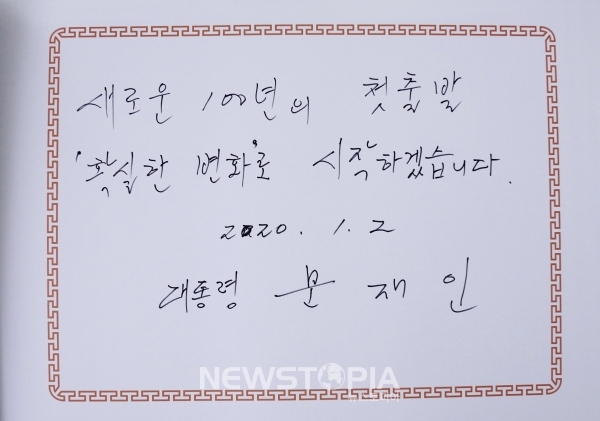 새로운 100년의 첫출발
'확실한 변화'로 시작하겠습니다.
2020. 1. 2
대통령 문재인
NEWSTOPIA